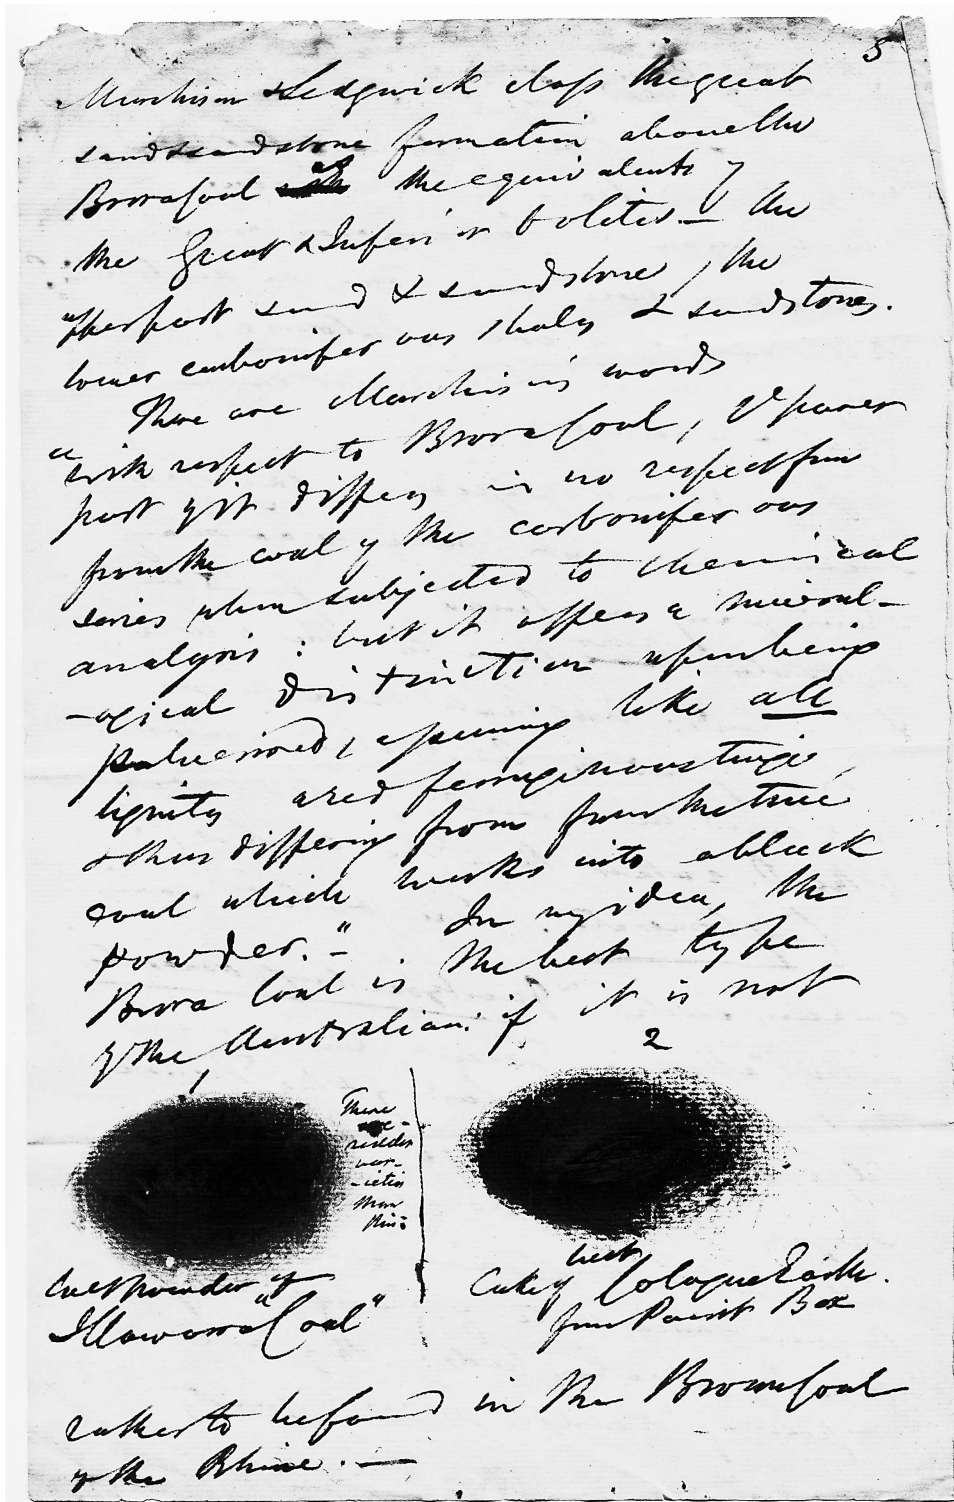 5
Murchison & Sedgwick class the great
sand & sandstone formation above the
Brora Coal as the equivalents of
the Great & Inferior Oolites — the
upper part sand & sandstone, the
lower carboniferous shales & sandstones.
These are Murchison's words
"with respect to Brora Coal, the purer
part of it differs in no respect from
from the coal of the carboniferous
series when subjected to chemical
analysis : but it offers a mineral-
-ogical distinction upon being
pulverized, assuming like all
lignites a red ferruginous tinge,
& thus differing from from the true
coal which works into a black
powder." — In my idea, the
Brora Coal is the best type
of the Australian: if it is not
1
2
These
are
redder
var-
-ieties
than
this
powder of
Illawarra "Coal"
best
Cake of Cologne Earth.
from Paint Box
rather to be found in the Brown Coal
of the Rhine. —